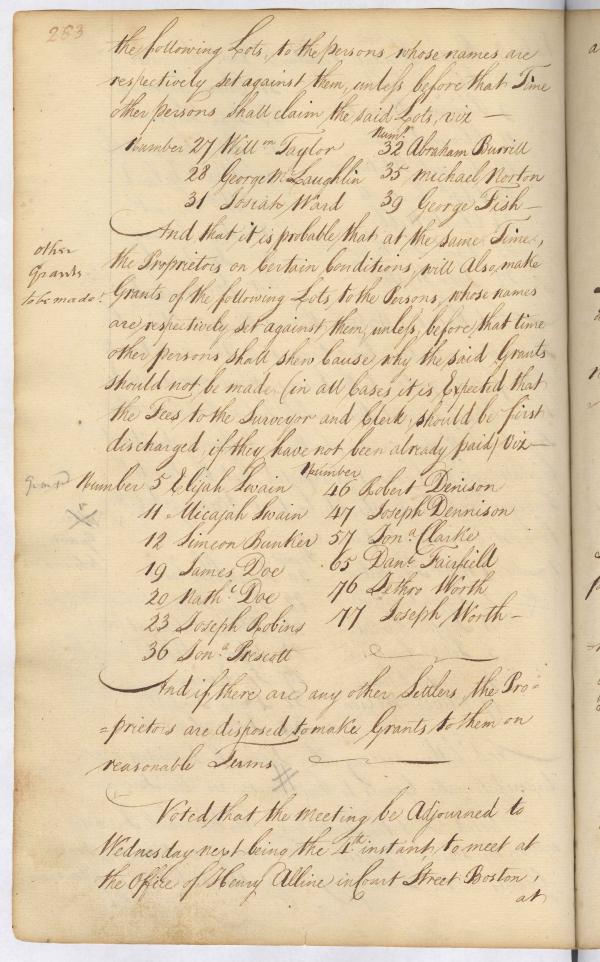 253
the following Lots, to the persons whose names are
respectively set against them, unless before that Time
other persons shall claim the said Lots, viz —
Numbr.
Number 27 Willm Taylor 32 Abraham Burrill
28 George McLaughlin 35 Michael Norton
31 Josiah Ward 39 George Fish —
And that it is probable, that at the same Time,
other
Grants
to be made.
the Proprietors on Certain Conditions, will Also, make
Grants of the following Lots, to the Persons, whose names
are, respectively, set against them, unless, before, that time
other persons shall shew Cause why the said Grants
should not be made. (in all Cases it is Expected that
the Fees to the Surveyor and Clerk, should be first
discharged, if they have not been already paid) Viz —
Number
Number 5 Elijah Swain 46 Robert Denison
11 Micajah Swain 47 Joseph Dennison
12 Simeon Bunker 57 Jona. Clarke
19 James Doe 65 Danl. Fairfield
20 Nathl. Doe 76 Jethro Worth
23 Joseph Robins 77 Joseph Worth —
36 Jona. Prescott
And if there are any other Settlers, the Pro=
=prietors are disposed to make Grants to them on
reasonable Terms
#
Voted, that the meeting be Adjourned to
Wednesday next being the 4th instant, to meet at
the Office of Henry Alline in Court Street Boston,
at